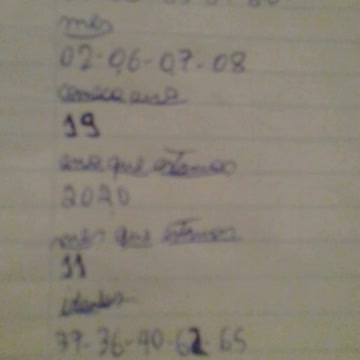 mês
02-06-07-08
começa ano
19
ano que estamos
2020
mês que estamos
11
idades
77-36-40-62-65